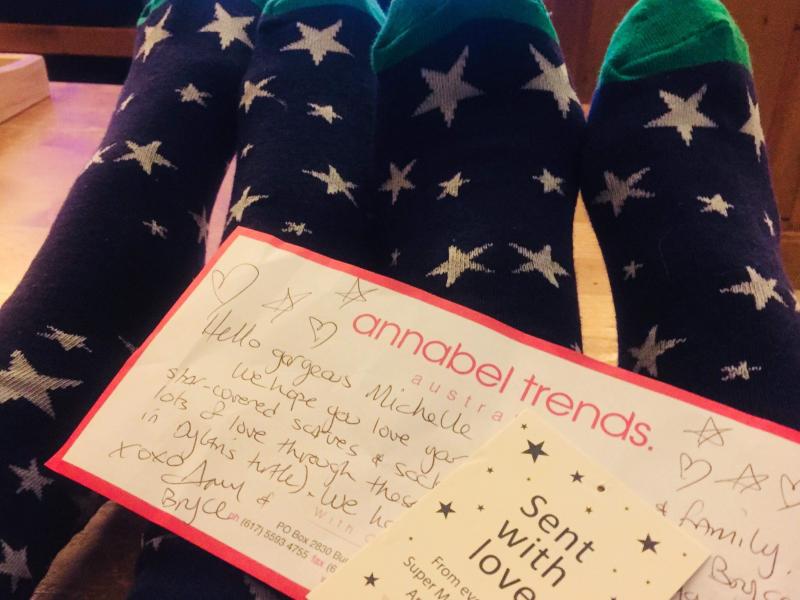 annabel trends.
austra
Hello gorgeous Michelle
We hope you love your
star-covered scarves & sock
lots of love through those
in Dylan's turtle). We ho
xoxo
Amy &
Bryce
with c
ph (617) 5593 4755 fax (6
PO Box 2830 Bu
& family.
Bryce
Sent
with
love
From eve
Super M